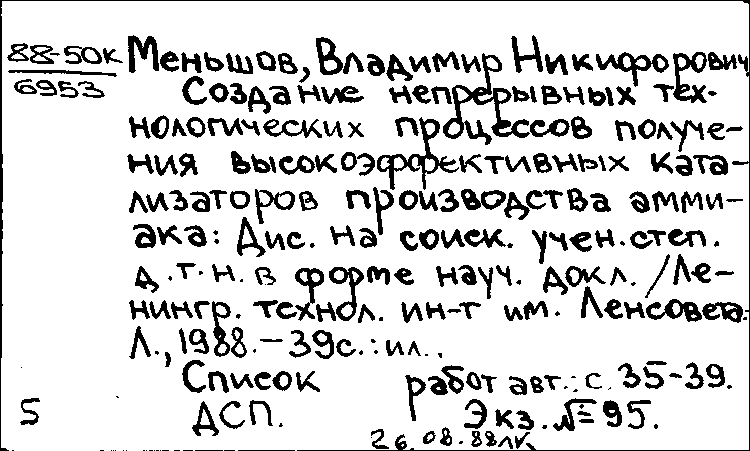 88-50к Меньшов, Владимир Никифорович
6953
Создание непрерывных тех-
нологических процессов получе-
ния высокоэффективных ката-
лизаторов производства амми-
ака: Дис. на соиск. учен. степ.
д.т.н. в форме науч. докл. / Ле-
нингр. технол. ин-т им. Ленсовета.
Л., 1988. - 39с.: ил..
Список работ авт.: с. 35-39.
5 ДСП. Экз. №95.
26.08.88